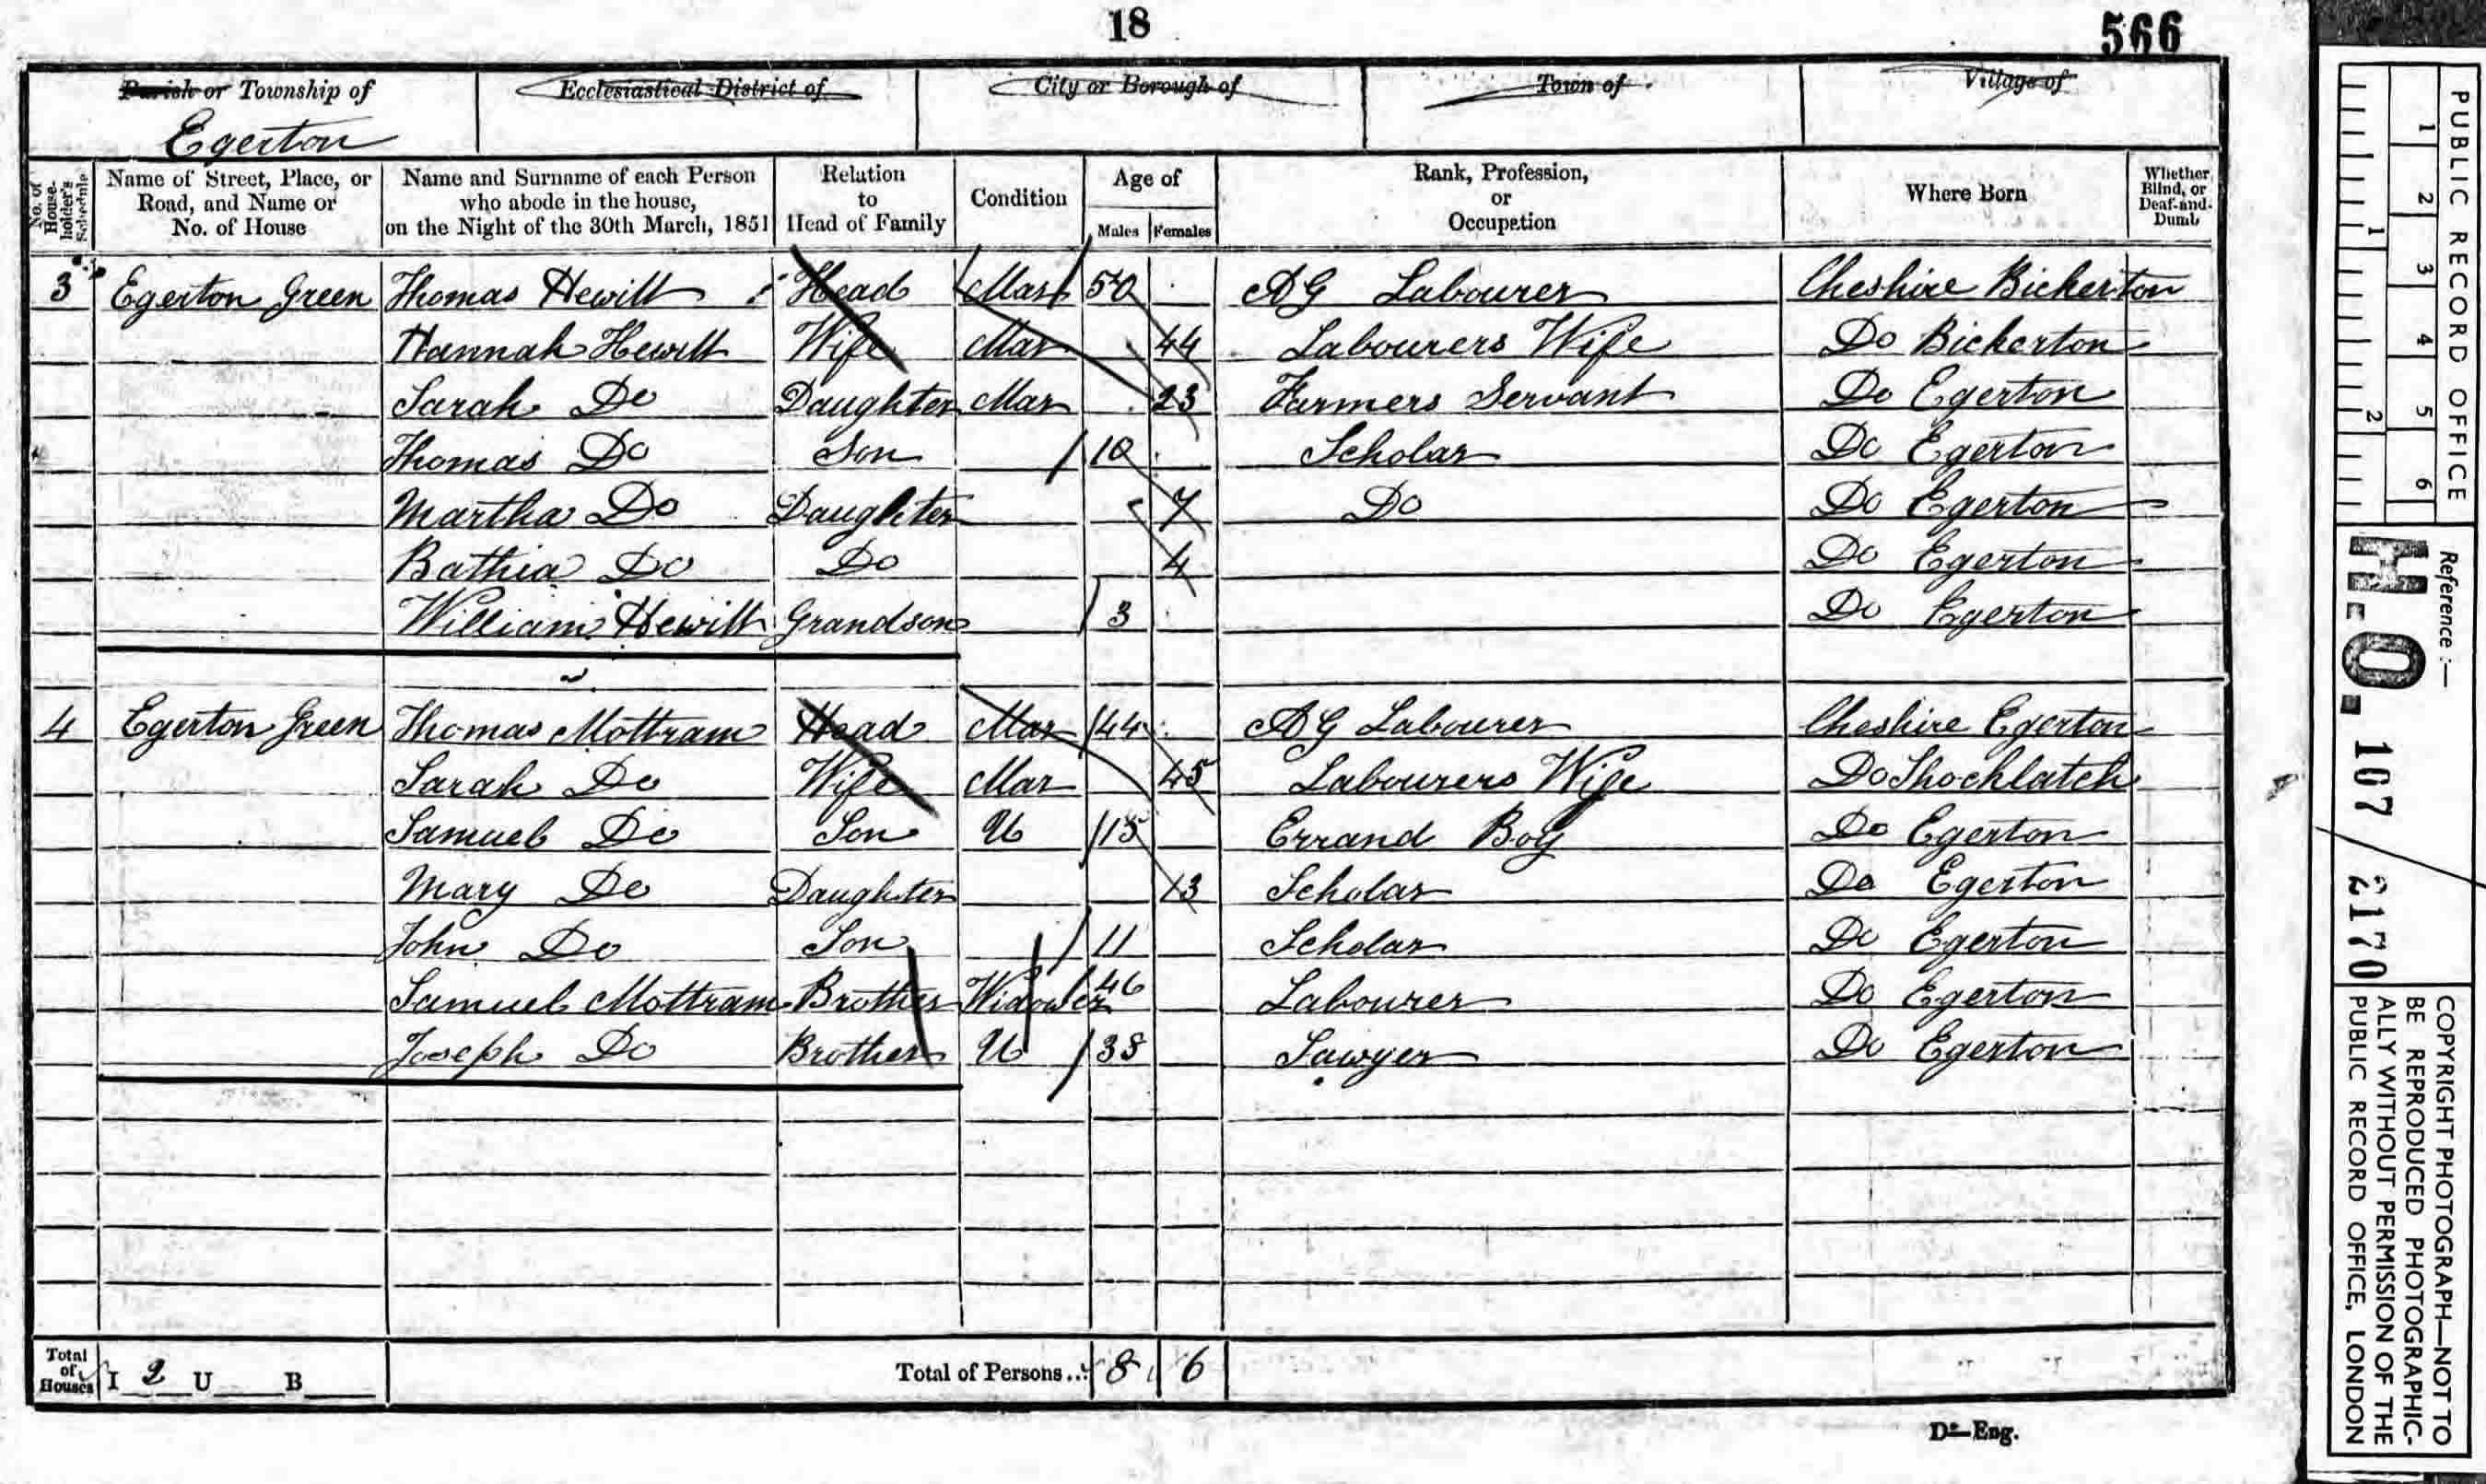 18
566
Parish or Township of Ecclesiastical District of City or Borough of Town of Village of
Egerton
No. of House-holder's Schedule Name of Street, Place, or Road, and Name or No. of House Name and Surname of each Person who abode in the house, on the Night of the 30th March, 1851 Relation to Head of Family Condition Age of Males Females Rank, Profession, or Occupation Where Born Whether Blind, or Deaf-and-Dumb
3 Egerton Green Thomas Hewitt Head Mar 50 AG Labourer Cheshire Bickerton
Hannah Hewitt Wife Mar 44 Labourers Wife Do Bickerton
Sarah Do Daughter Mar 23 Farmers Servant Do Egerton
Thomas Do Son 10 Scholar Do Egerton
Martha Do Daughter 7 Do Do Egerton
Bathia Do Do 4 Do Egerton
William Hewitt Grandson 3 Do Egerton
4 Egerton Green Thomas Mottram Head Mar 44 AG Labourer Cheshire Egerton
Sarah Do Wife Mar 45 Labourers Wife Do Shochlatch
Samuel Do Son U 15 Errand Boy Do Egerton
Mary Do Daughter 13 Scholar Do Egerton
John Do Son 11 Scholar Do Egerton
Samuel Mottram Brother Widower 46 Labourer Do Egerton
Joseph Do Brother U 38 Sawyer Do Egerton
Total of Houses I 2 U B Total of Persons... 8 6
D-Eng.
PUBLIC RECORD OFFICE
1 2 3 4 5 6
1 2
Reference :-
H.O. 107 / 2170
COPYRIGHT PHOTOGRAPH—NOT TO
BE REPRODUCED PHOTOGRAPHIC-
ALLY WITHOUT PERMISSION OF THE
PUBLIC RECORD OFFICE, LONDON